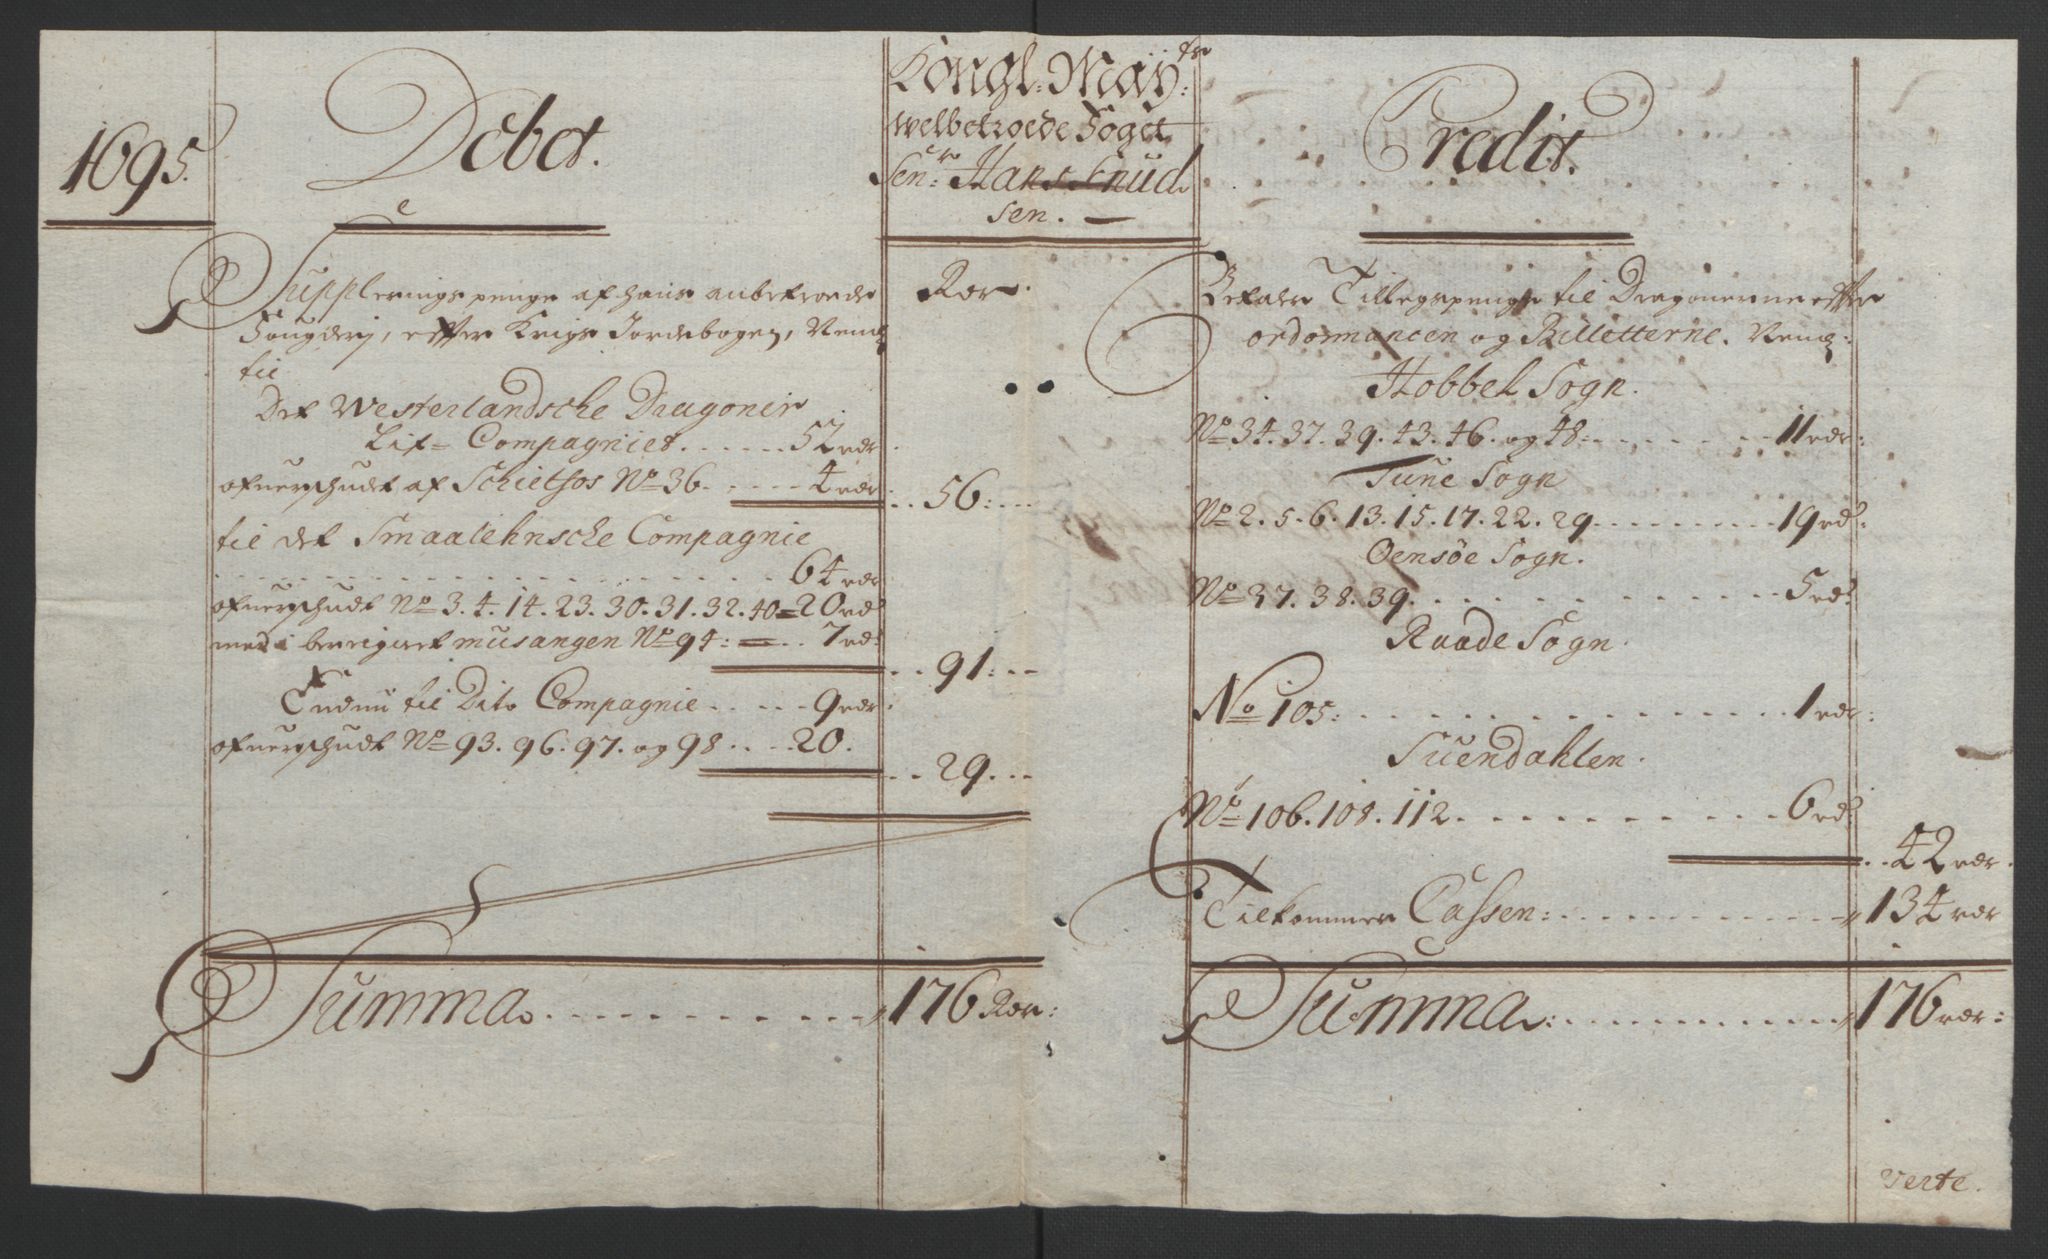 1695.
Debet.
Kongl: May:ts
welbetroede Foget
Sen:r Hans Knud
sen.
Credit.
Supplerings penge af hans anbetroede
Fougderj, efter Krigs Jordebogen, Nemb:
til
Det Westerlandsche Dragonir
Lif= Compagniet. . . . . . 52 rdr
ofuerschudt af Schietsos No 36. . . . . 4 rdr
til det Smaalehnsche Compagnie
. . . . . . . . . . . . 64 rdr
ofuerschudt No 3. 4. 14. 23. 30. 31. 32. 40 = 20 rdr
med i berrignet musangen No 94: = . . 7 rdr
Endnu til Dito Compagnie . . . . . 9 rdr
ofuerschudt No 93. 96. 97. og 98 . . . . 20.
Summa. . . . . . . . . . .
Rdr.
. . 56: . . .
. . 91: . . .
. . 29. . . .
176 Rdr:
Betalte Tillegspenge til Dragonerne efter
ordonnancen og Billetterne. Nemb:
Hobbel Sogn.
No 34. 37. 39. 43. 46. og 48: . . . . . . . 11 rdr:
Tune Sogn
No 2. 5. 6. 13. 15. 17. 22. 29 . . . . . . . . . 19 rdr:
Oensøe Sogn.
No 37. 38. 39. . . . . . . . . . . 5 rdr:
Raade Sogn.
No 105: . . . . . . . . . . . 1 rdr:
Suendahlen.
No 106. 108. 112. . . . . . . . . . 6 rdr:
. . 42 rdr.
Tilkommer Cassen: . . . . . . . . . . . 134 rdr
Summa: . . . . . . . . . . . 176 rdr:
Verte.